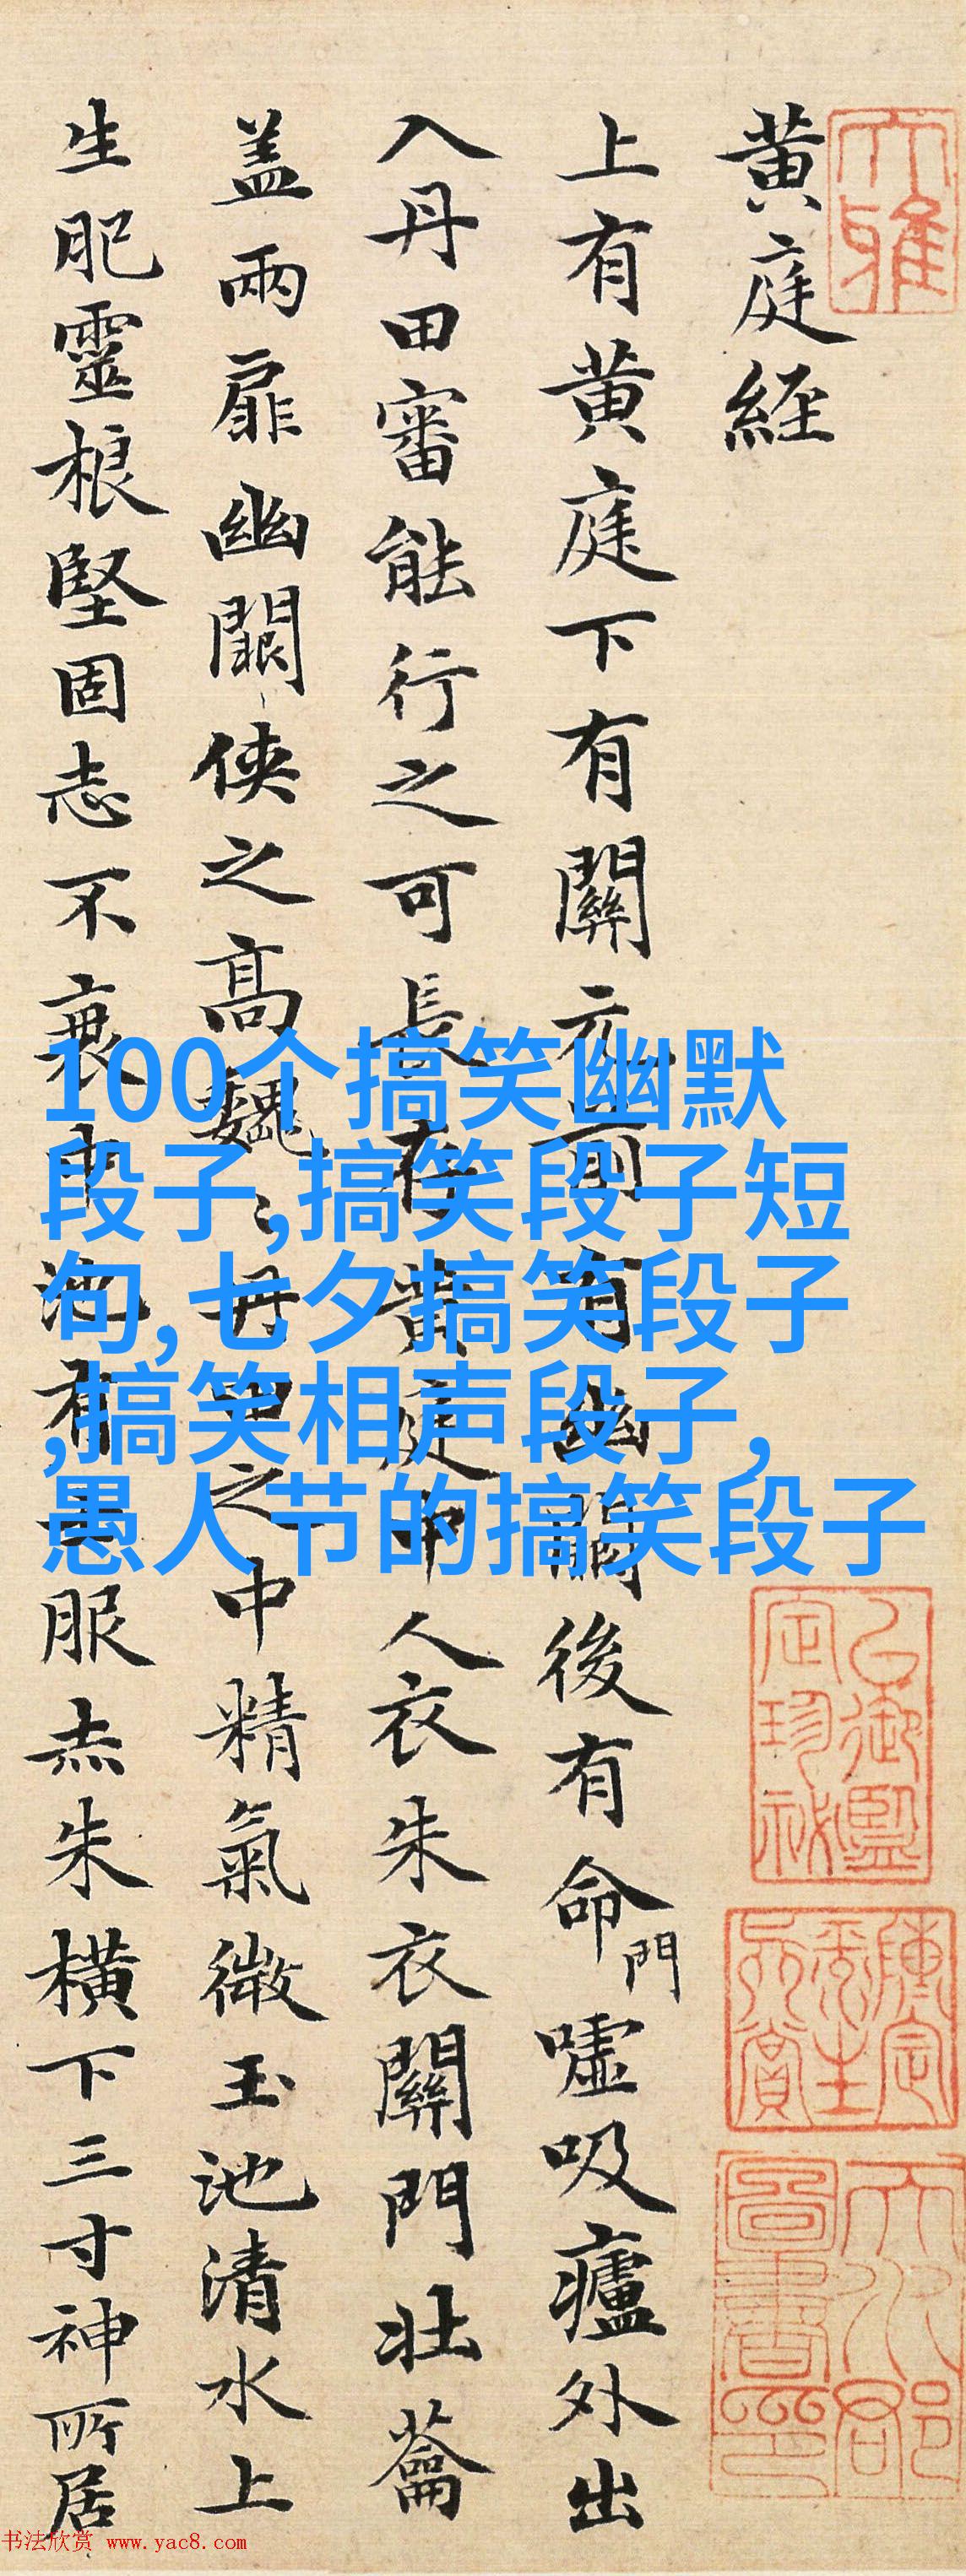 大雅
黄庭経
上有黄庭下有關元前有幽闕後有命門嘘吸廬外出
入丹田審能行之可長存黄庭中人衣朱衣關門壮蘥
盖兩扉幽闕侠之髙魏〻丹田之中精氣微玉池清水上
生肥靈根堅固志不衰中池有士服赤朱横下三寸神所居
100个搞笑幽默
段子,搞笑段子短
句,七夕搞笑段子
,搞笑相声段子,
愚人节的搞笑段子
书法欣赏 www.yac8.com